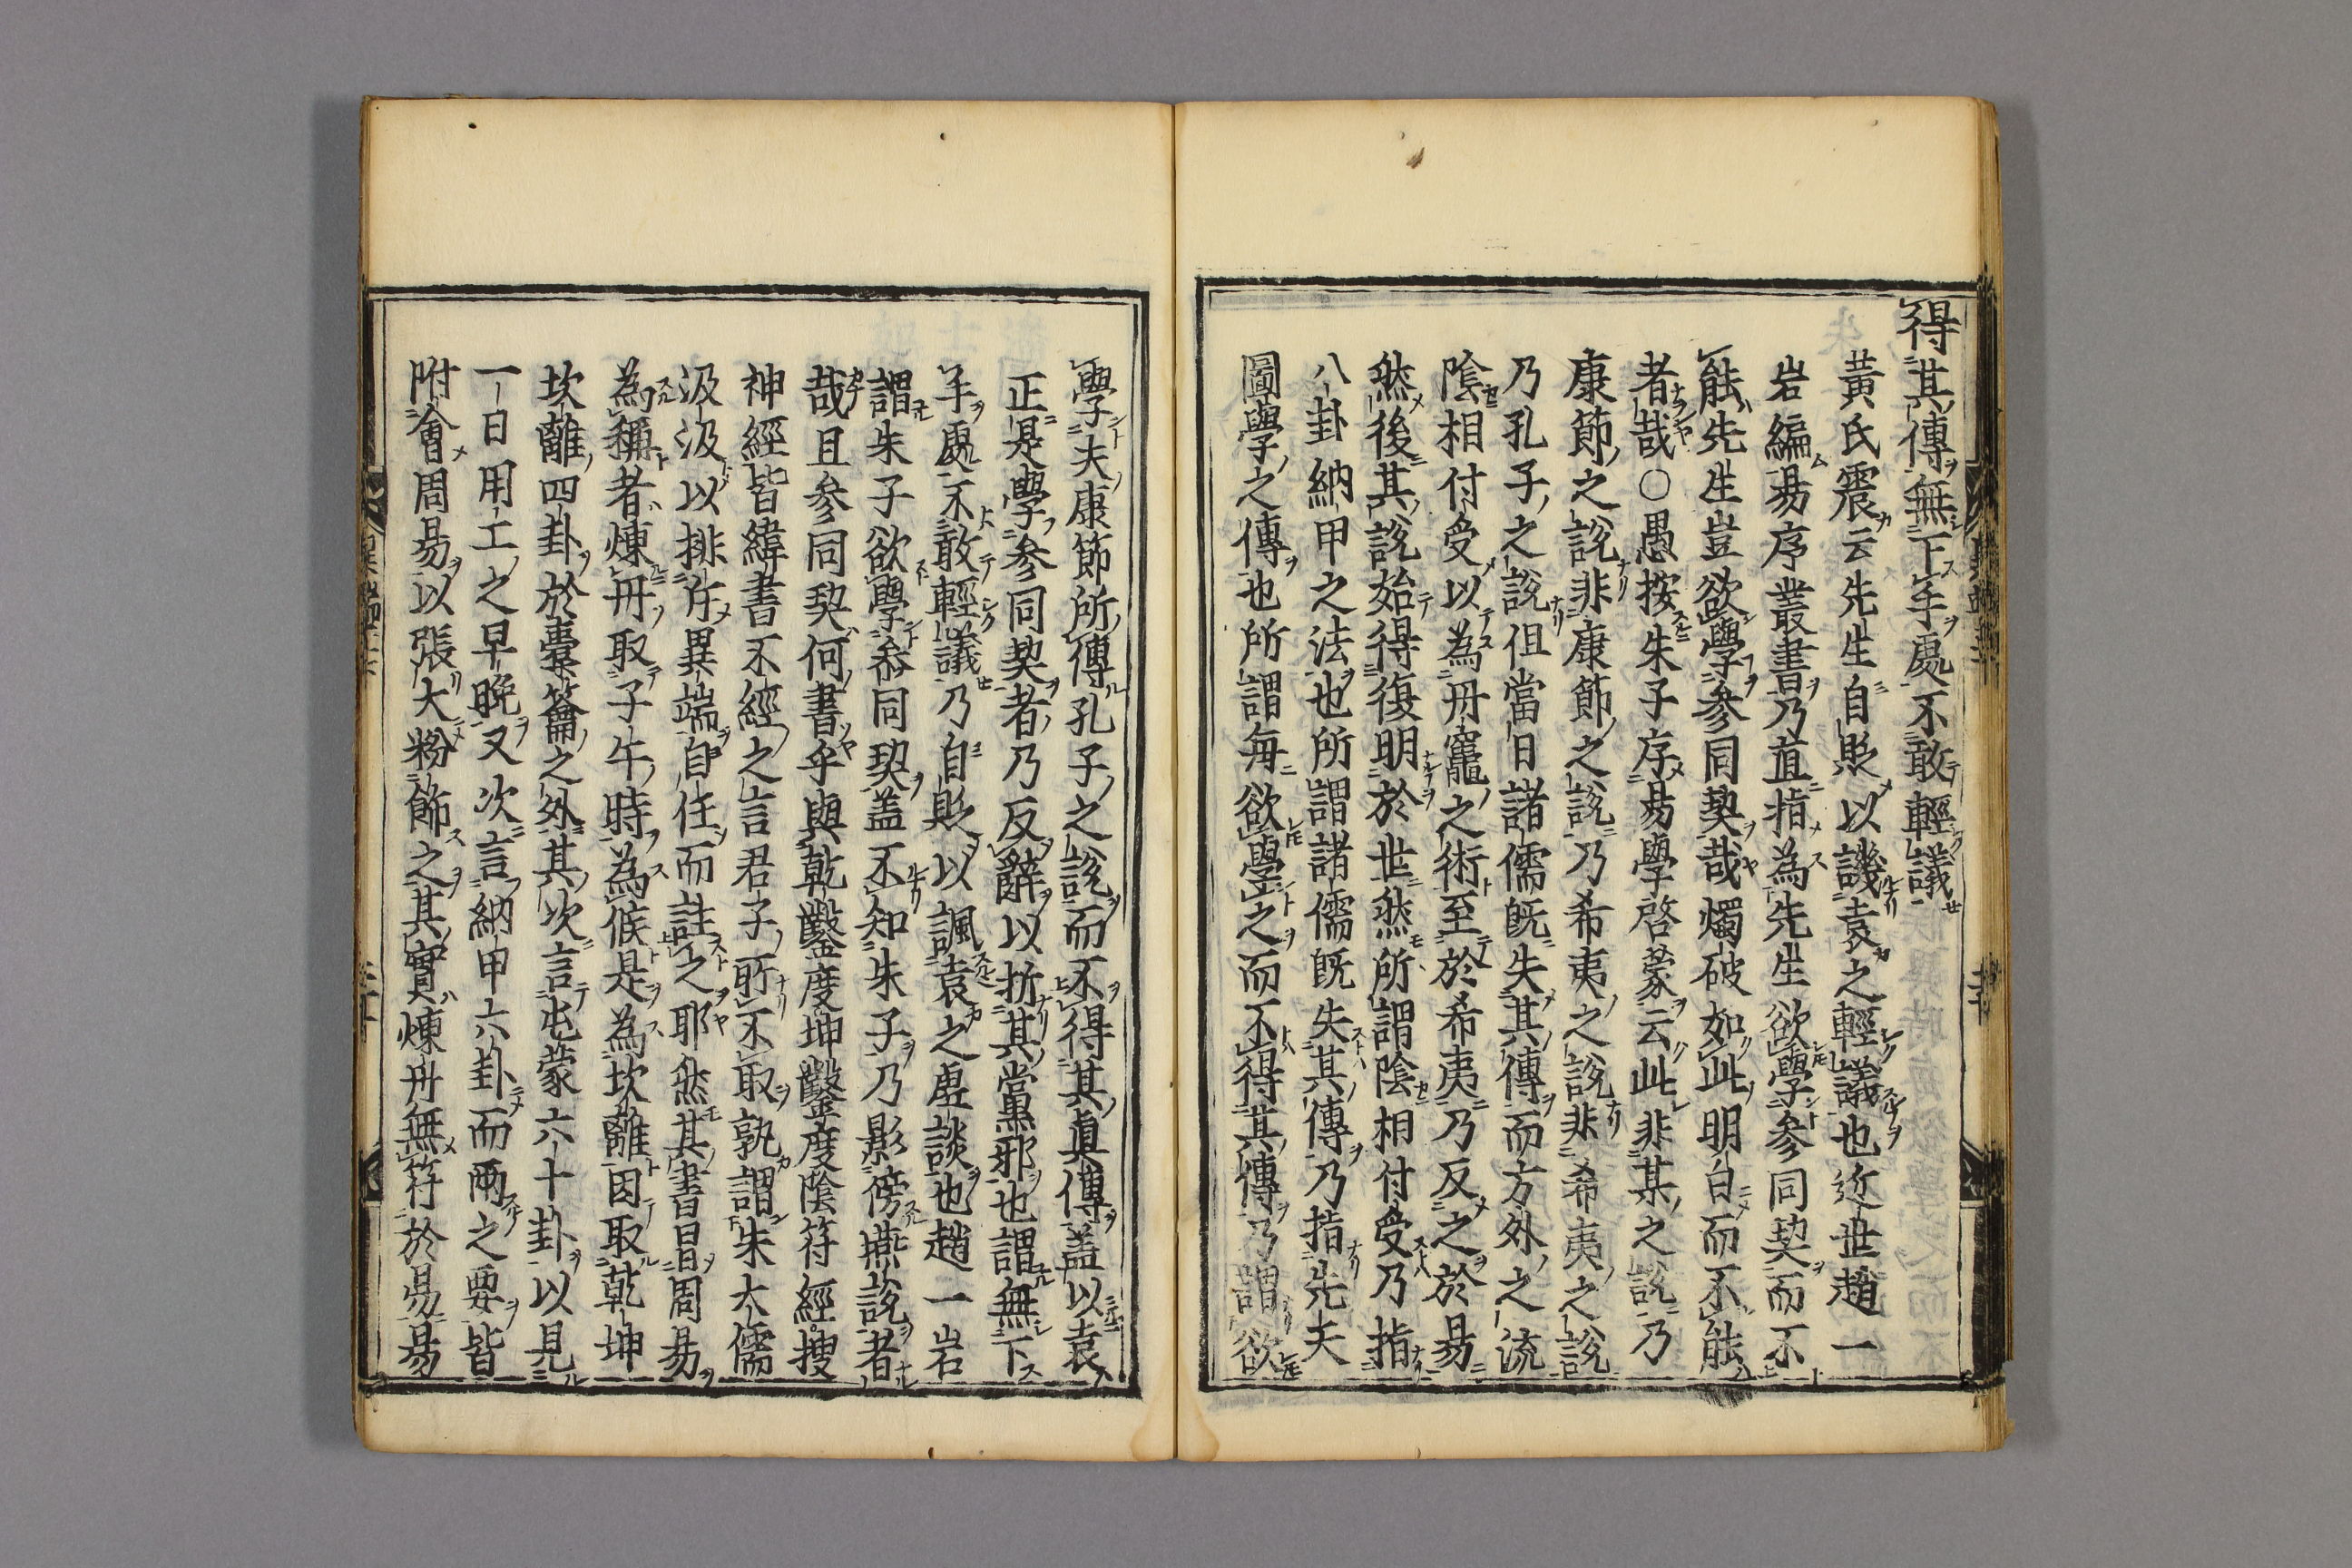 得其傳無下手處不敢輕議
黃氏震云先生自貶以譏袁之輕議也近世趙一
岩編易序叢書乃直指為先生欲學參同契而不
能先生豈欲學參同契哉燭破如此明白而不能
者哉○愚按朱子序易學啓蒙云此非某之說乃
康節之說非康節之說乃希夷之說非希夷之說
乃孔子之說但當日諸儒旣失其傳而方外之流
陰相付受以為丹竈之術至於希夷乃反之於易
然後其說始得復明於世然所謂陰相付受乃指
八卦納甲之法也所謂諸儒旣失其傳乃指先夫
圖學之傳也所謂每欲學之而不得其傳乃謂欲
學夫康節所傳孔子之說而不得其眞傳盖以袁
正是學參同契者乃反辭以折其黨邪也謂無下
手處不敢輕議乃自貶以諷袁之虛談也趙一岩
謂朱子欲學參同契盖不知朱子乃影傍燕說者
哉且參同契何書乎與乾鑿度坤鑿度陰符經搜
神經皆緯書不經之言君子所不取孰謂朱大儒
汲汲以排斥異端自任而註之耶然其書冒周易
為稱者煉丹取子午時為候是為坎離因取乾坤
坎離四卦於橐籥之外其次言屯蒙六十卦以見
一日用工之早晚又次言納甲六卦而兩之要皆
附會周易以張大粉飾之其實煉丹無符於易易